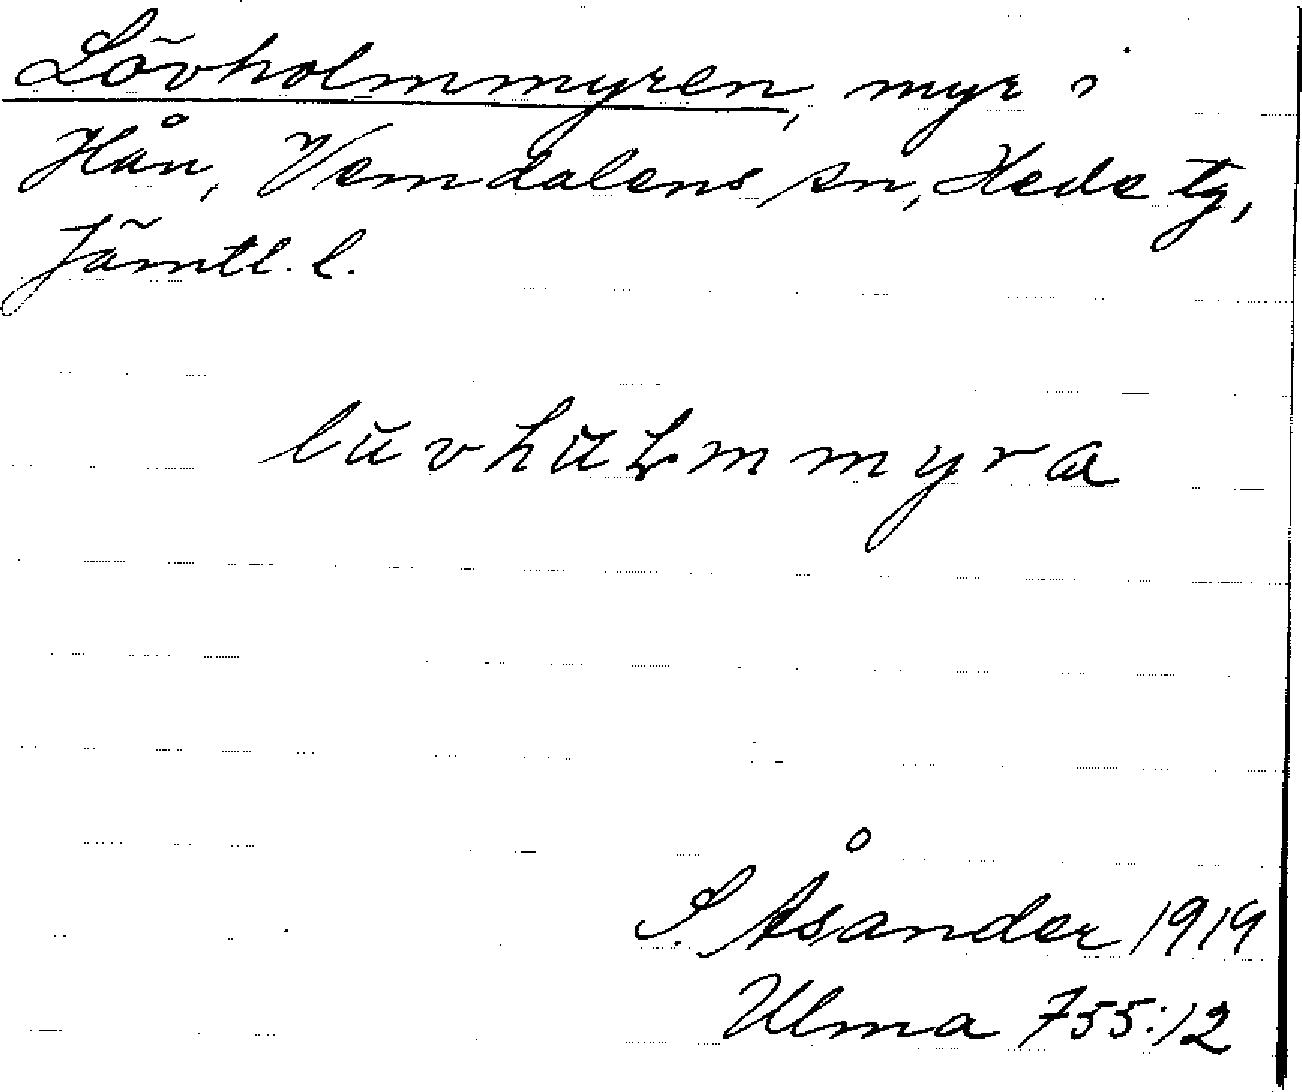 Lövholmmyren, myr i
Hån, Vemdalens sn, Hede tg,
Jämtl. l.
S. Åsander 1919
Ulma 755:12